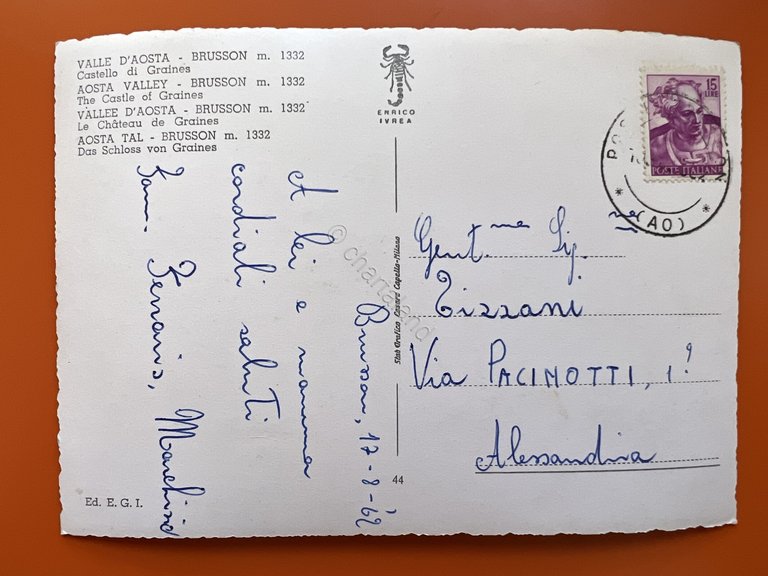 VALLE D'AOSTA - BRUSSON m. 1332
Castello di Graines
AOSTA VALLEY - BRUSSON m. 1332
The Castle of Graines
VALLÉE D'AOSTA - BRUSSON m. 1332
Le Château de Graines
AOSTA TAL - BRUSSON m. 1332
Das Schloss von Graines
ENRICO
IVREA
15
LIRE
POSTE ITALIANE
(AO)
Brusson, 17-8-'62
A lei e mamma
cordiali saluti
Fam. Ferraris,
Gent.ma Sig.na
Tizzani
Via PACINOTTI, 1?
Alessandria
Stab. Grafico Cesare Capello-Milano
44
Ed. E. G. I.
© chartaland